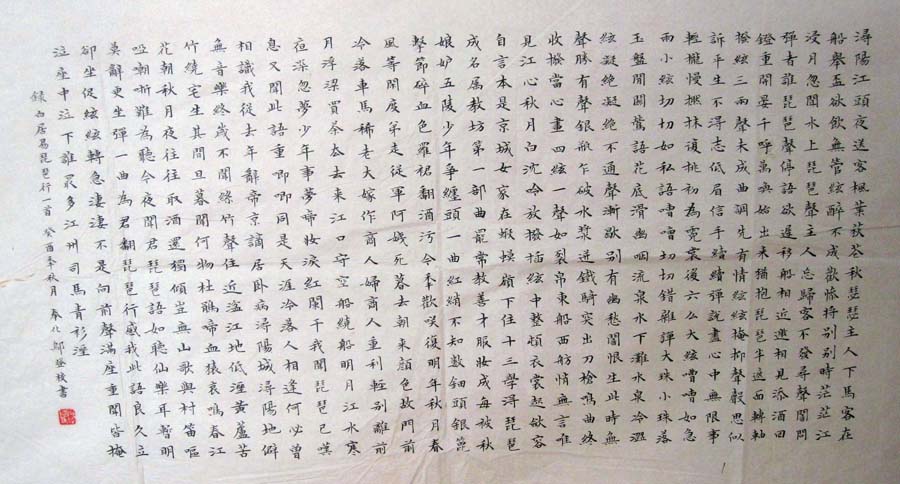 潯陽江頭夜送客楓葉荻花秋瑟瑟主人下馬客在
船舉盃欲飲無管絃醉不成歡慘將別別時茫茫江
浸月忽聞水上琵琶聲主人忘歸客不發尋聲闇問
彈者誰琵琶聲停語欲遲移船相近邀相見添酒回
燈重開宴千呼萬喚始出來猶抱琵琶半遮面轉軸
撥絃三兩聲未成曲調先有情絃絃掩抑聲聲思似
訴平生不得志低眉信手續續彈說盡心中無限事
輕攏慢撚抹復挑初為霓裳後六么大絃嘈嘈如急
雨小絃切切如私語嘈嘈切切錯雜彈大珠小珠落
玉盤間關鶯語花底滑幽咽流泉水下灘水泉冷澀
絃凝絕凝絕不通聲漸歇別有幽愁闇恨生此時無
聲勝有聲銀瓶乍破水漿迸鐵騎突出刀槍鳴曲終
收撥當心畫四絃一聲如裂帛東船西舫悄無言唯
見江心秋月白沈吟放撥插絃中整頓衣裳起斂容
自言本是京城女家在蝦蟆陵下住十三學得琵琶
成名屬教坊第一部曲罷常教善才服妝成每被秋
娘妒五陵少年爭纏頭一曲紅綃不知數鈿頭銀篦
擊節碎血色羅裙翻酒污今年歡笑復明年秋月春
風等閑度弟走從軍阿姨死暮去朝來顏色故門前
冷落車馬稀老大嫁作商人婦商人重利輕別離前
月浮梁買茶去去來江口守空船繞船明月江水寒
夜深忽夢少年事夢啼妝淚紅闌干我聞琵琶已嘆
息又聞此語重唧唧同是天涯淪落人相逢何必曾
相識我從去年辭帝京謫居臥病潯陽城潯陽地僻
無音樂終歲不聞絲竹聲住近湓江地低濕黃蘆苦
竹繞宅生其間旦暮聞何物杜鵑啼血猿哀鳴春江
花朝秋月夜往往取酒還獨傾豈無山歌與村笛嘔
啞嘲哳難為聽今夜聞君琵琶語如聽仙樂耳暫明
莫辭更坐彈一曲為君翻琵琶行感我此語良久立
卻坐促絃絃轉急淒淒不是向前聲滿座重聞皆掩
泣座中泣下誰最多江州司馬青衫濕
錄白居易琵琶行一首 癸酉年秋月 奉化鄔書